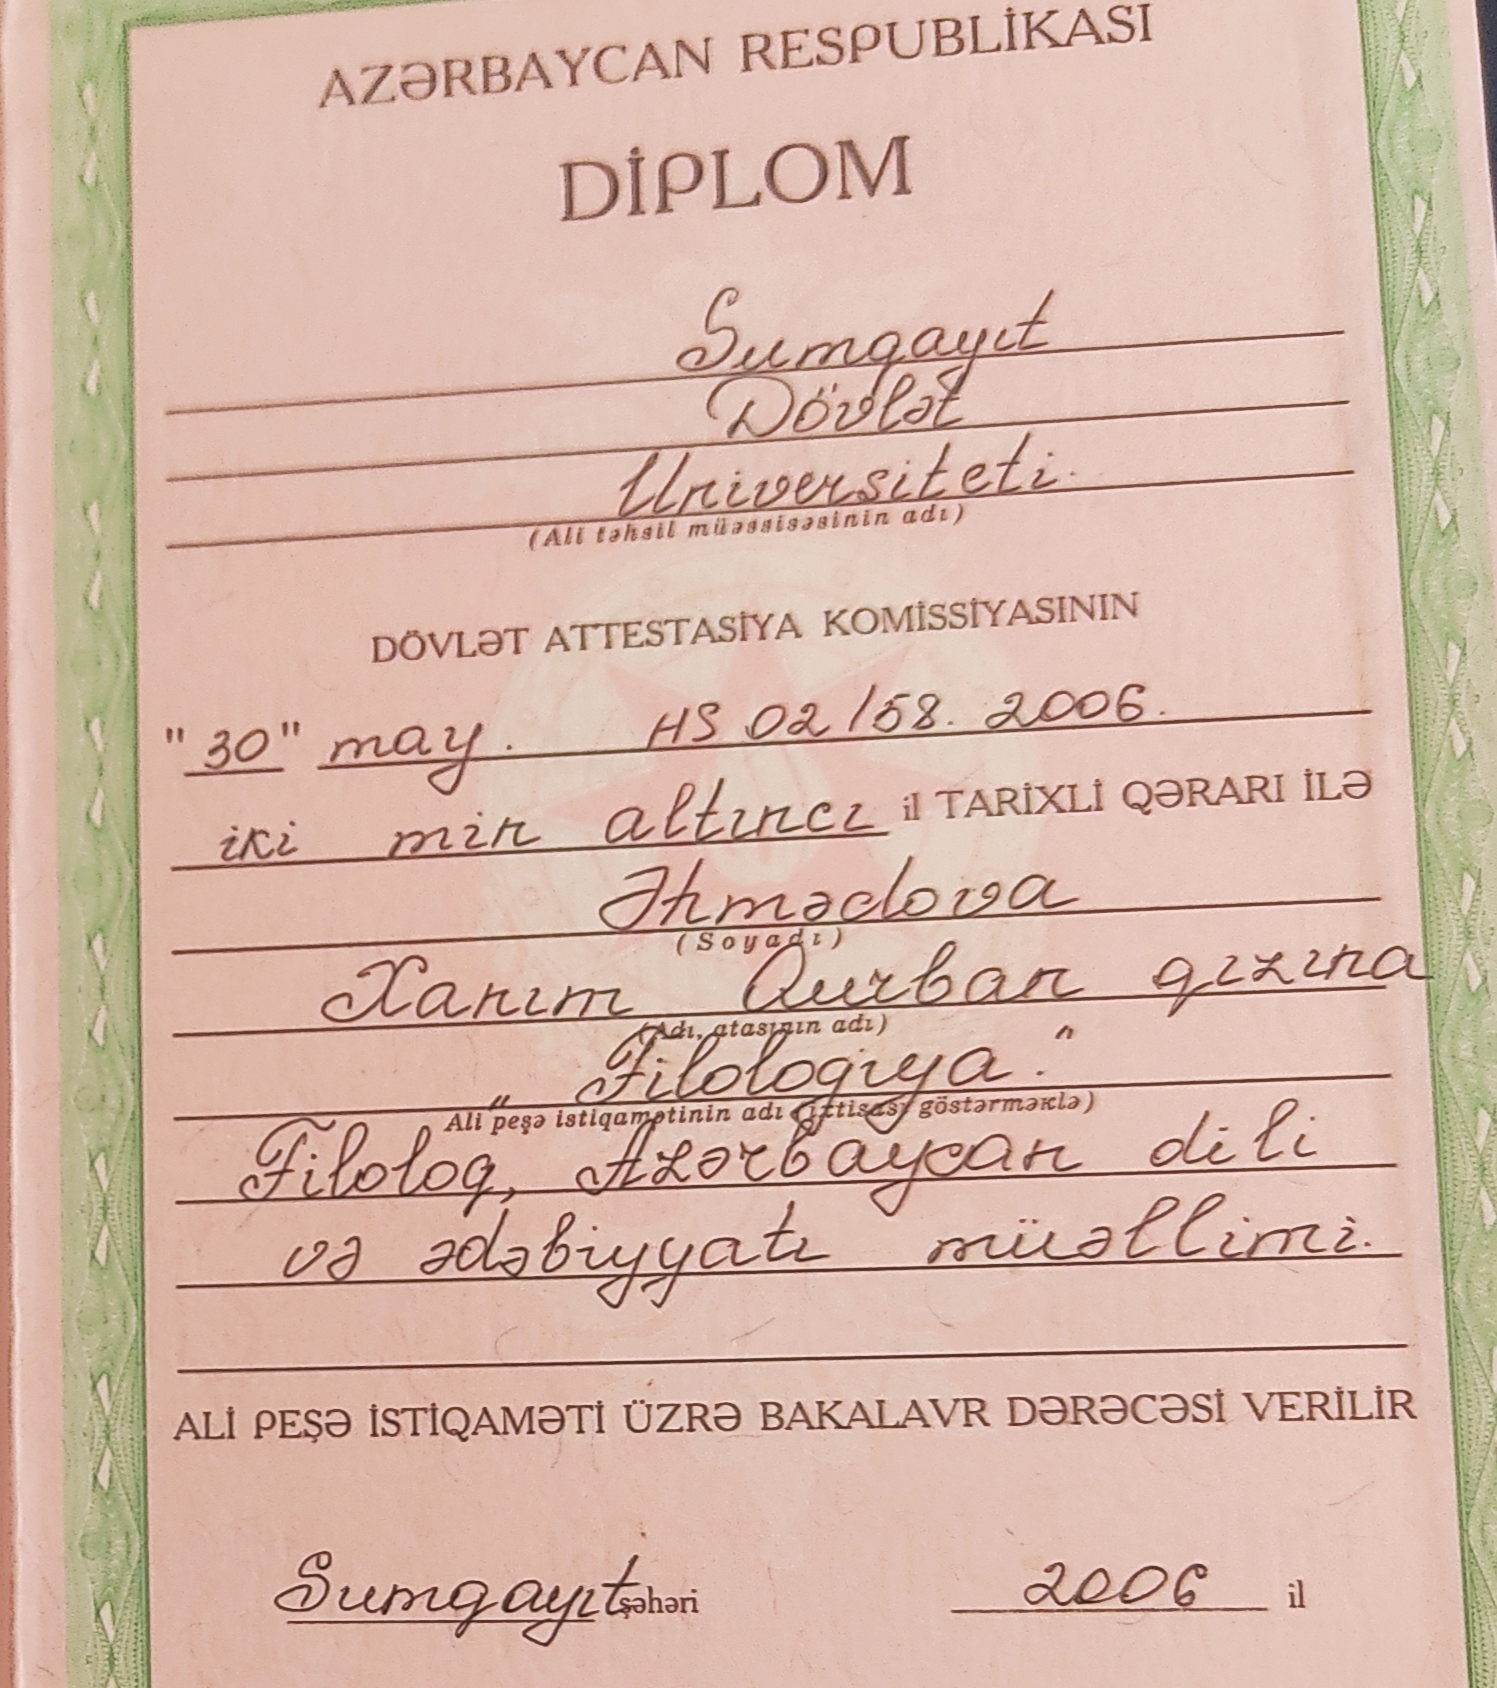 AZƏRBAYCAN RESPUBLİKASI
DİPLOM
Sumqayıt
Dövlət
Universiteti.
(Ali təhsil müəssisəsinin adı)
DÖVLƏT ATTESTASİYA KOMİSSİYASININ
"30" may. HS 02/58. 2006.
iki min altıncı il TARİXLİ QƏRARI İLƏ
Əhmədova
(Soyadı)
Xanım Qurban qızına
(Adı, atasının adı)
„Filologiya."
Ali peşə istiqamətinin adı (ixtisası göstərməklə)
Filoloq, Azərbaycan dili
və ədəbiyyatı müəllimi.
ALİ PEŞƏ İSTİQAMƏTİ ÜZRƏ BAKALAVR DƏRƏCƏSİ VERİLİR
Sumqayıt şəhəri 2006 il